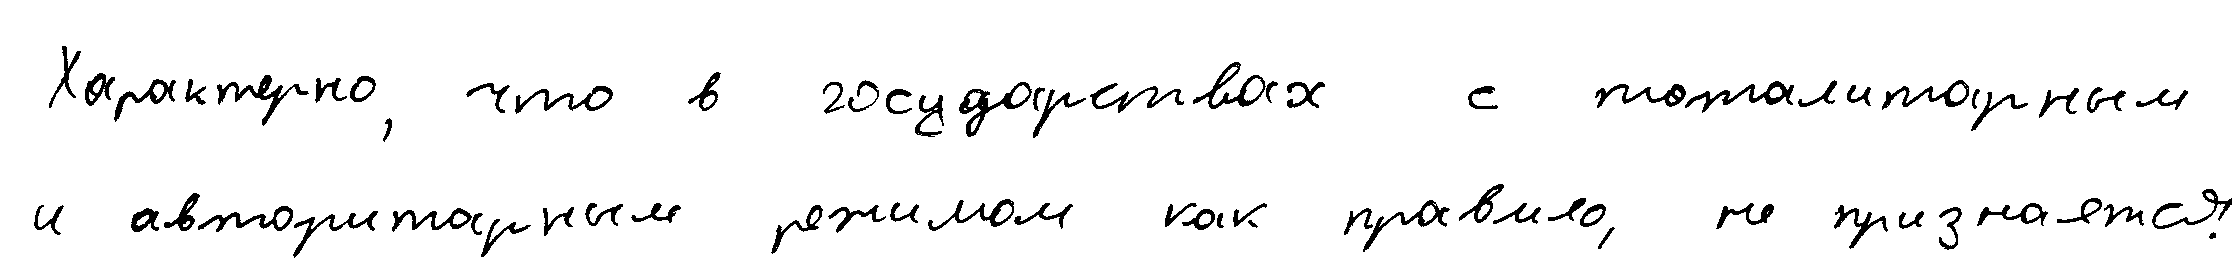 Характерно, что в государствах с тоталитарным
и авторитарным режимом как правило, не признается!